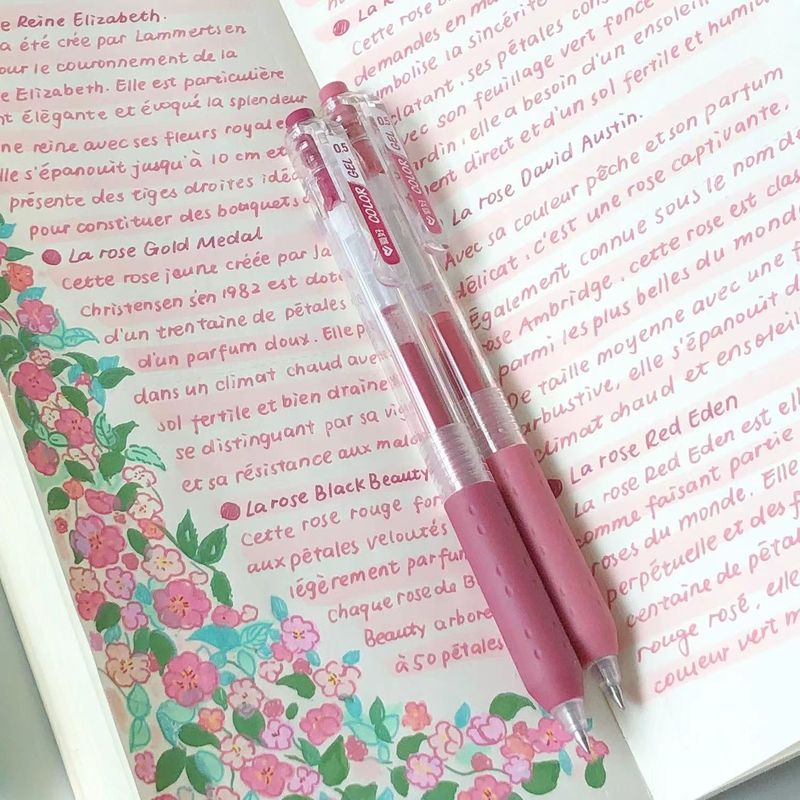 e Reine Elizabeth.
a été crée par Lammerts en
our le couronnement de la
e Elizabeth. Elle est particulière
nt élégante et évoque la splendeur
ne reine avec ses fleurs royale
lle s'épanouit jusqu'à 10 cm et
présente des tiges droites idé
pour constituer des bouquets
La rose Gold Medal
Cette rose jeune créée par Ja
Christensen s'en 1982 est dot
d'un trentaine de pétales
d'un parfum doux. Elle p
dans un climat chaud ave
sol fertile et bien draîné
se distinguant par sa vi
et sa résistance aux mala
La rose Black Beauty
Cette rose rouge for
aux pétales veloutés
légèrement parfum
chaque rose de B
Beauty arbore
à 50 pétales
La R
Cette rose b
demandes en ma
symbolise la sincérité
éclatant. ses pétales cons
avec son feuillage vert foncé
jardin, elle a besoin d'un ensoleil
ent direct et d'un sol fertile et humid
La rose David Austin.
Avec sa couleur pêche et son parfum
délicat, c'est une rose captivante.
Également connue sous le nom de
rose Ambridge, cette rose est clas
parmi les plus belles du mond
De taille moyenne avec une f
arbustive, elle s'épanouit d
climat chaud et ensoleil
La rose Red Eden
La rose Red Eden est ell
comme faisant partie
roses du monde. Elle
perpétuelle et des f
centaine de péta
rouge rosé, elle
couleur vert m
0.5
COLOR GEL
真好
0.5
COLOR GEL
真好